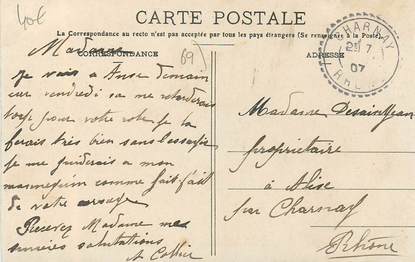 40€
CARTE POSTALE
La Correspondance au recto n'est pas acceptée par tous les pays étrangers (Se renseigner à la Poste)
CORRESPONDANCE
69
ADRESSE
CHARNAY
21 7
07
RHONE
Madame
Je vais a Anse demain
car vendredi sa me retarderais
trop pour votre robe je la
ferais très bien sans l'essayer
je me guiderais a mon
mannequin comme fait
de votre corsage
Recevez Madame mes
sincères salutations
Madame
propriétaire
à Alise
par Charnay
Rhône